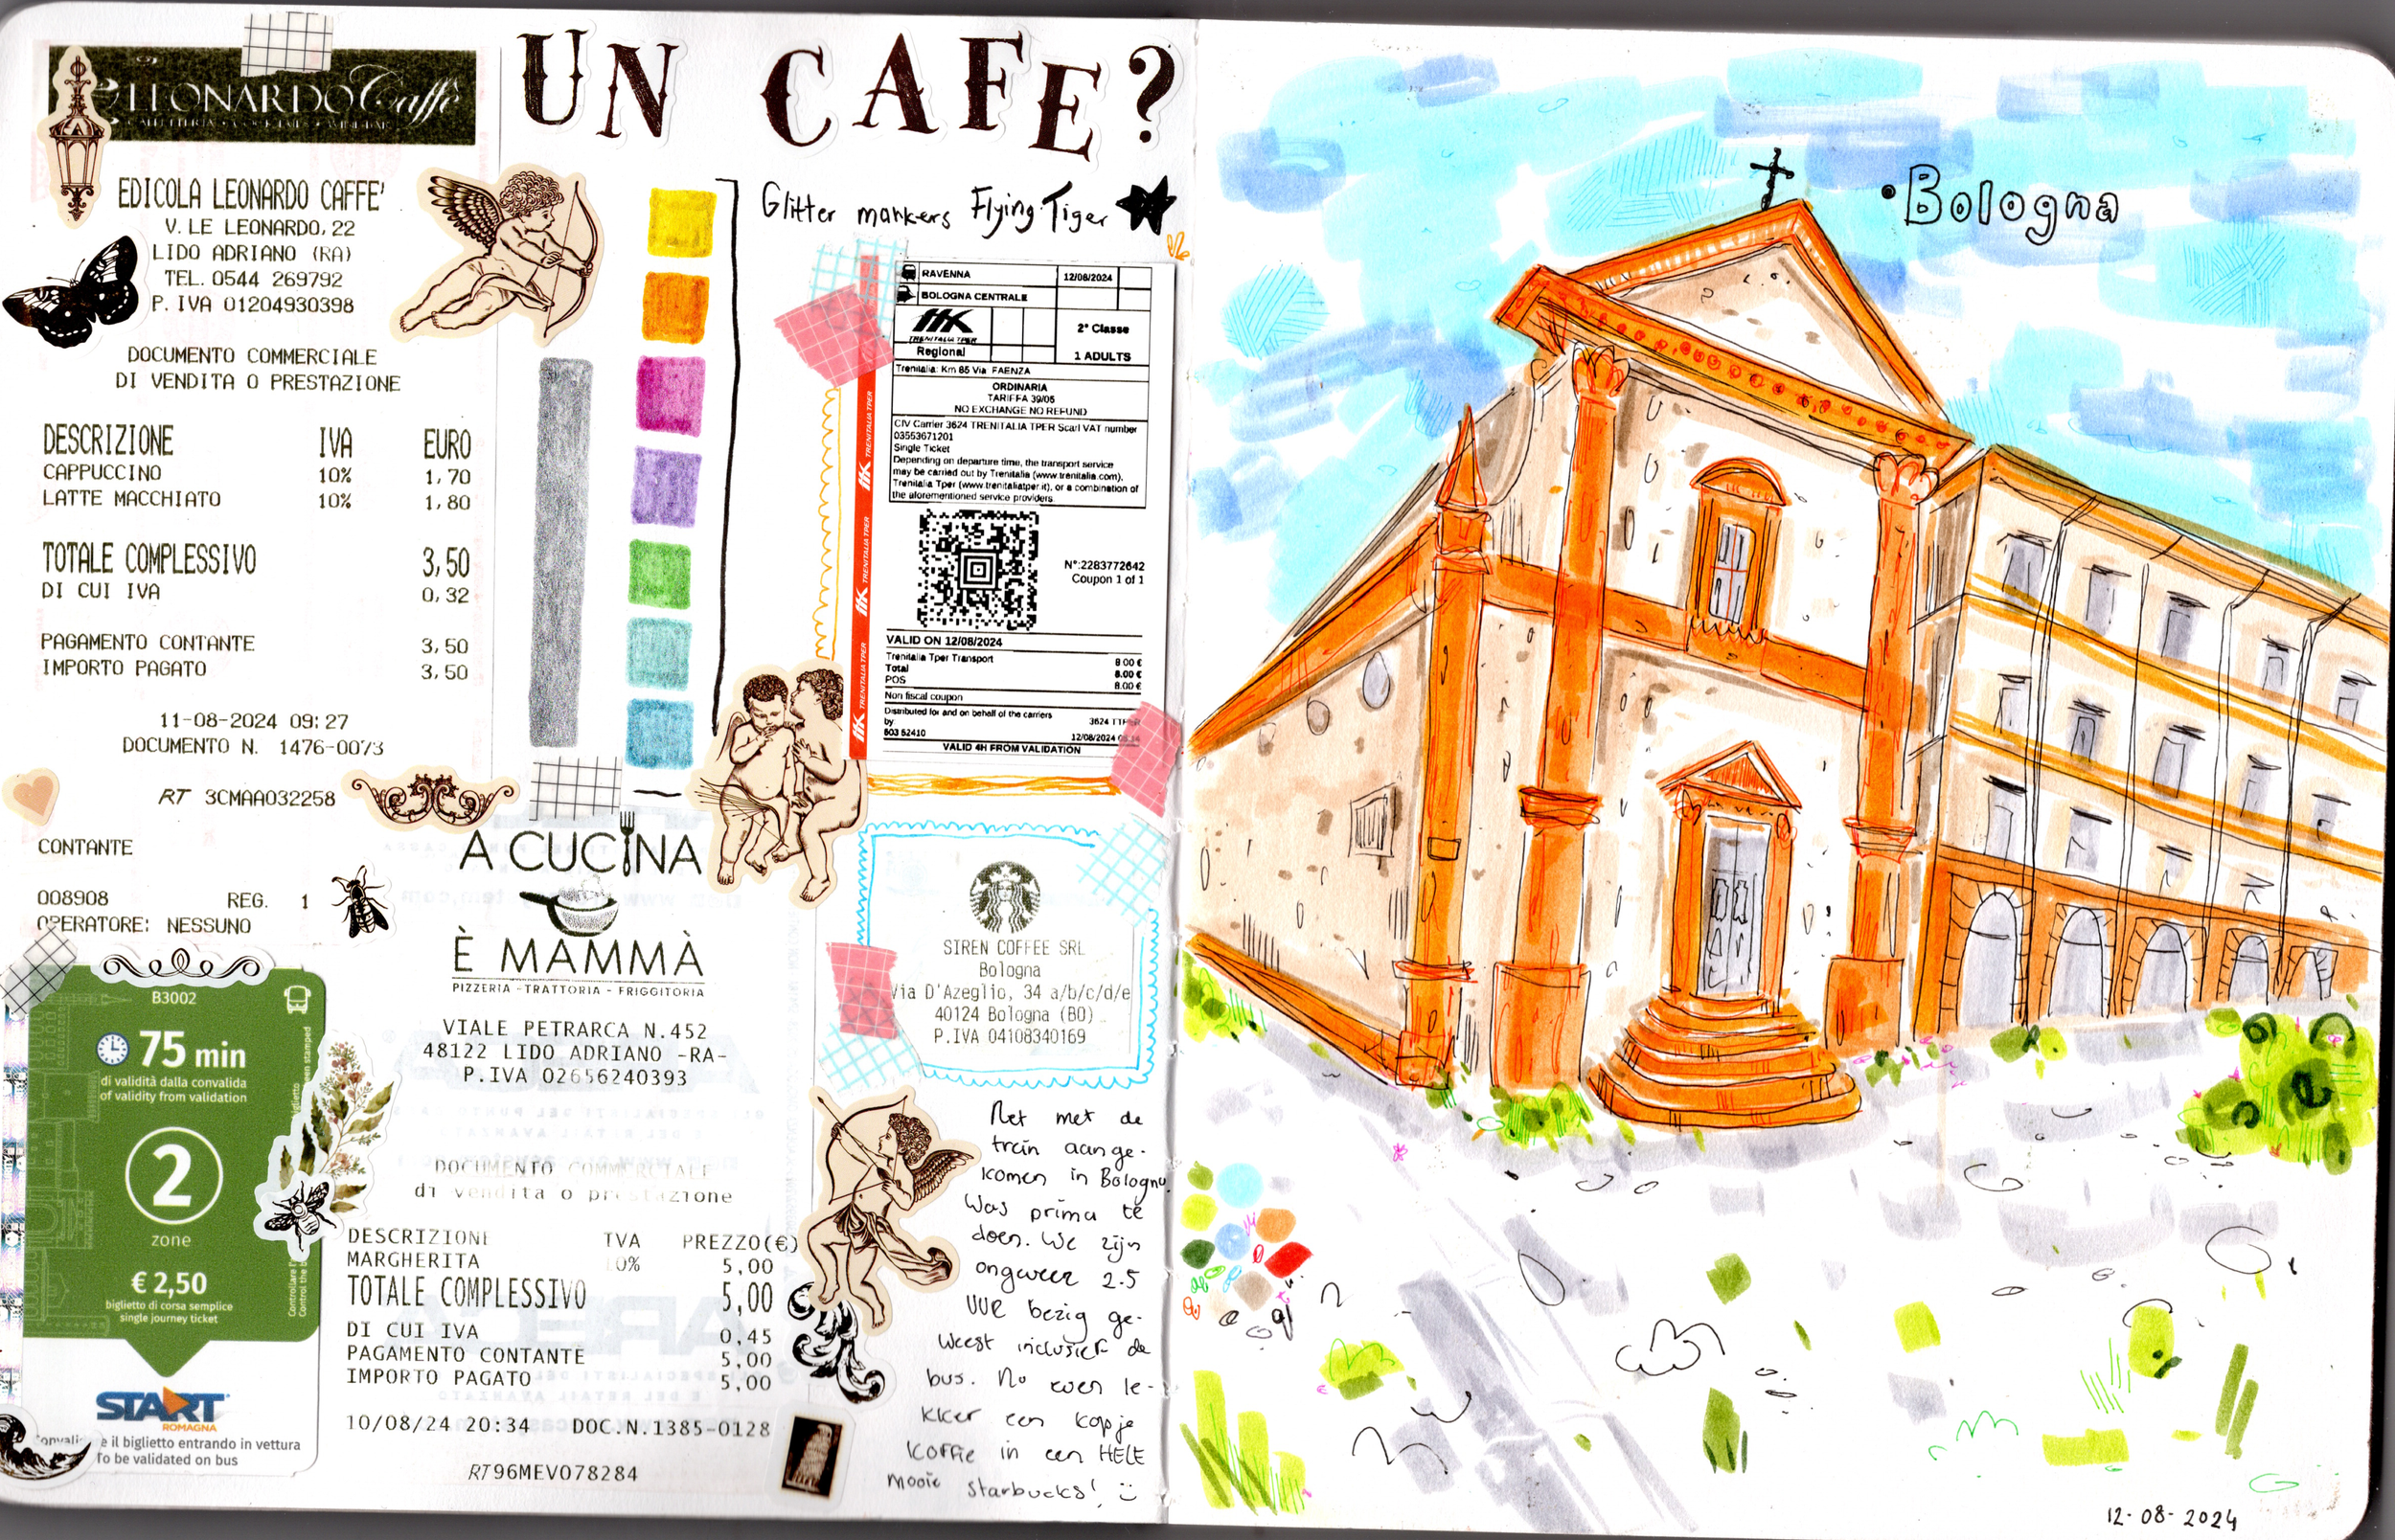 UN CAFE?
LEONARDO Caffè
EDICOLA LEONARDO CAFFE'
V. LE LEONARDO, 22
LIDO ADRIANO (RA)
TEL. 0544 269792
P. IVA 01204930398
DOCUMENTO COMMERCIALE
DI VENDITA O PRESTAZIONE
DESCRIZIONE IVA EURO
CAPPUCCINO 10% 1,70
LATTE MACCHIATO 10% 1,80
TOTALE COMPLESSIVO 3,50
DI CUI IVA 0,32
PAGAMENTO CONTANTE 3,50
IMPORTO PAGATO 3,50
11-08-2024 09:27
DOCUMENTO N. 1476-0073
RT 3CMAA032258
CONTANTE
008908 REG. 1
OPERATORE: NESSUNO
B3002
75 min
di validità dalla convalida
of validity from validation
2
zone
€ 2,50
biglietto di corsa semplice
single journey ticket
START
ROMAGNA
e il biglietto entrando in vettura
To be validated on bus
A CUCINA
È MAMMÀ
PIZZERIA - TRATTORIA - FRIGGITORIA
VIALE PETRARCA N.452
48122 LIDO ADRIANO -RA-
P.IVA 02656240393
DOCUMENTO COMMERCIALE
di vendita o prestazione
DESCRIZIONE IVA PREZZO(€)
MARGHERITA 10% 5,00
TOTALE COMPLESSIVO 5,00
DI CUI IVA 0,45
PAGAMENTO CONTANTE 5,00
IMPORTO PAGATO 5,00
10/08/24 20:34 DOC.N.1385-0128
RT96MEV078284
Glitter markers Flying Tiger
RAVENNA 12/08/2024
BOLOGNA CENTRALE
TRENITALIA TPER
2ª Classe
Regional 1 ADULTS
Trenitalia: Km 85 Via FAENZA
ORDINARIA
TARIFFA 39/05
NO EXCHANGE NO REFUND
CIV Carrier 3624 TRENITALIA TPER Scarl VAT number
03553671201
Single Ticket
Depending on departure time, the transport service
may be carried out by Trenitalia (www.trenitalia.com),
Trenitalia Tper (www.trenitaliatper.it), or a combination of
the aforementioned service providers.
N°:2283772642
Coupon 1 of 1
VALID ON 12/08/2024
Trenitalia Tper Transport 8.00 €
Total 8.00 €
POS 8.00 €
Non fiscal coupon
Distributed for and on behalf of the carriers 3624
by
603 52410 12/08/2024
VALID 4H FROM VALIDATION
TRENITALIA TPER
TRENITALIA TPER
TRENITALIA TPER
SIREN COFFEE SRL
Bologna
Via D'Azeglio, 34 a/b/c/d/e
40124 Bologna (BO)
P.IVA 04108340169
Net met de
trein aange-
komen in Bologna.
Was prima te
doen. We zijn
ongeveer 2.5
uur bezig ge-
weest inclusief de
bus. Nu even le-
kker een kopje
koffie in een HELE
mooie starbucks!
Bologna
12-08-2024